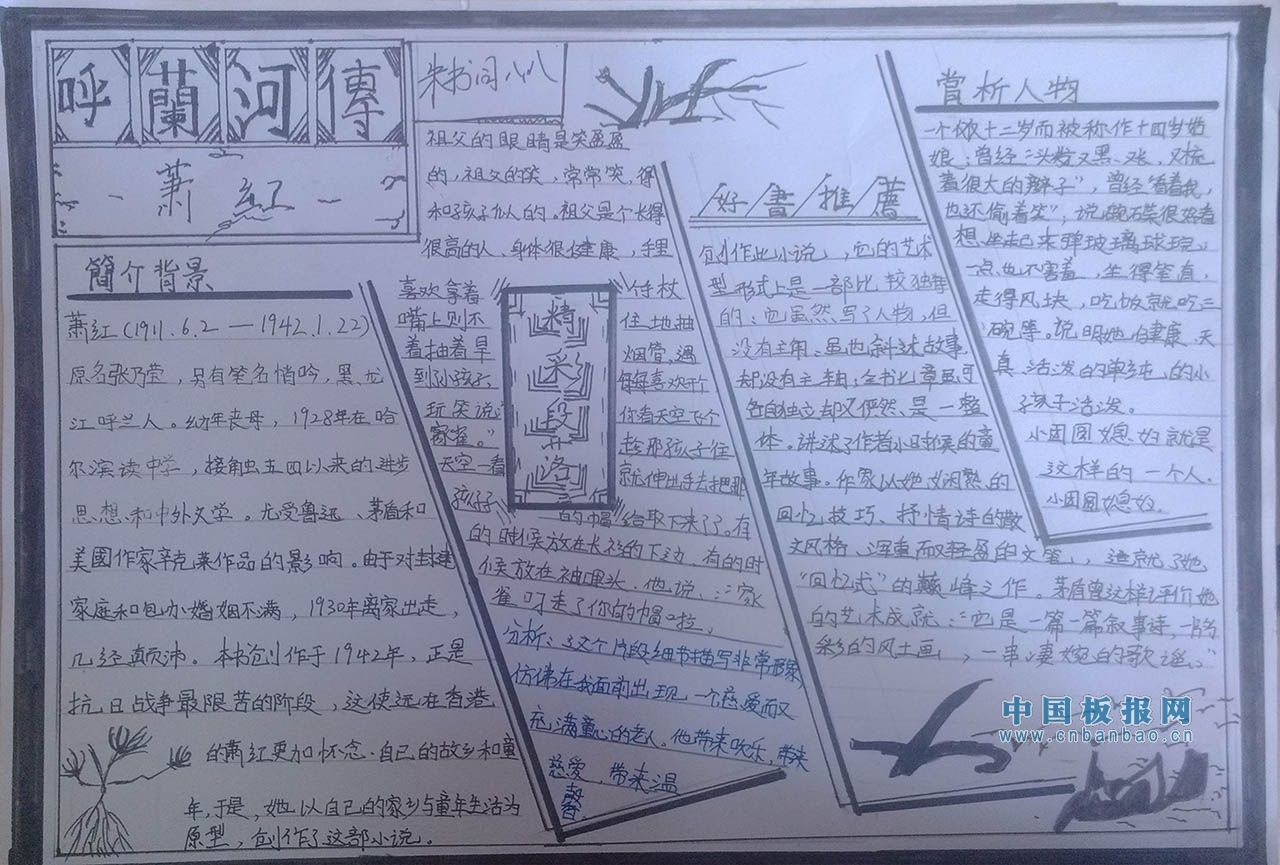 呼蘭河傳
萧紅
簡介背景
萧红(1911.6.2—1942.1.22)
原名张乃莹，另有笔名悄吟，黑龙
江呼兰人。幼年丧母，1928年在哈
尔滨读中学，接触五四以来的进步
思想和中外文学。尤受鲁迅、茅盾和
美國作家辛克莱作品的影响。由于对封建
家庭和包办婚姻不满，1930年离家出走，
几经颠沛。本书创作于1942年，正是
抗日战争最限苦的阶段，这使远在香港
的萧红更加怀念自己的故乡和童
年，于是，她以自己的家乡与童年生活为
原型，创作了这部小说。
祖父的眼睛是笑盈盈
的，祖父的笑，常常笑得
和孩子似人的。祖父是个长得
很高的人、身体很健康，手里
喜欢拿着 个手杖
嘴上则不 住地抽
着抽着旱 烟管，遇
到小孩子， 每每喜欢开个
玩笑说： 你看天空飞个
家雀。” 趁那孩子往
天空一看 就伸出手去把那
孩子 的帽给取下来了。有
的时候放在长衫的下边，有的时
候放在袖里头。他说：“家
雀叼走了你的帽啦。
精采段落
分析：这个片段细节描写非常形象，
仿佛在我面前出现一个慈爱而又
充满童心的老人。他带来欢乐，带来
慈爱，带来温
馨
好書推薦
创作此小说，它的艺术
型形式上是一部比较独特
的：它虽然写了人物，但
没有主角；虽也叙述故事，
却没有主轴；全书七章虽可
各自独立却又俨然是一整
体。讲述了作者小时候的童
年故事。作家以她娴熟的
回忆技巧、抒情诗的散
文风格、浑重而又轻盈的文笔，造就了她
“回忆式”的巅峰之作。茅盾曾这样评价她
的艺术成就：“它是一篇一篇叙事诗，一部多
彩的风土画，一串凄婉的歌谣。”
赏析人物
一个依十二岁而被称作十四岁姑
娘；曾经“头发又黑、又长，又梳
着很大的辫子”，曾经“看看我，
也还偷着笑”，说
想坐起来弹玻璃球玩。
一点也不害羞，坐得笔直，
走得风快，吃饭就吃三
碗等。说明她的健康、天
真、活泼的单纯的小
孩子活泼。
小团圆媳妇就是
这样的一个人.
小团圆媳妇。
中国板报网
www.cnbanbao.cn